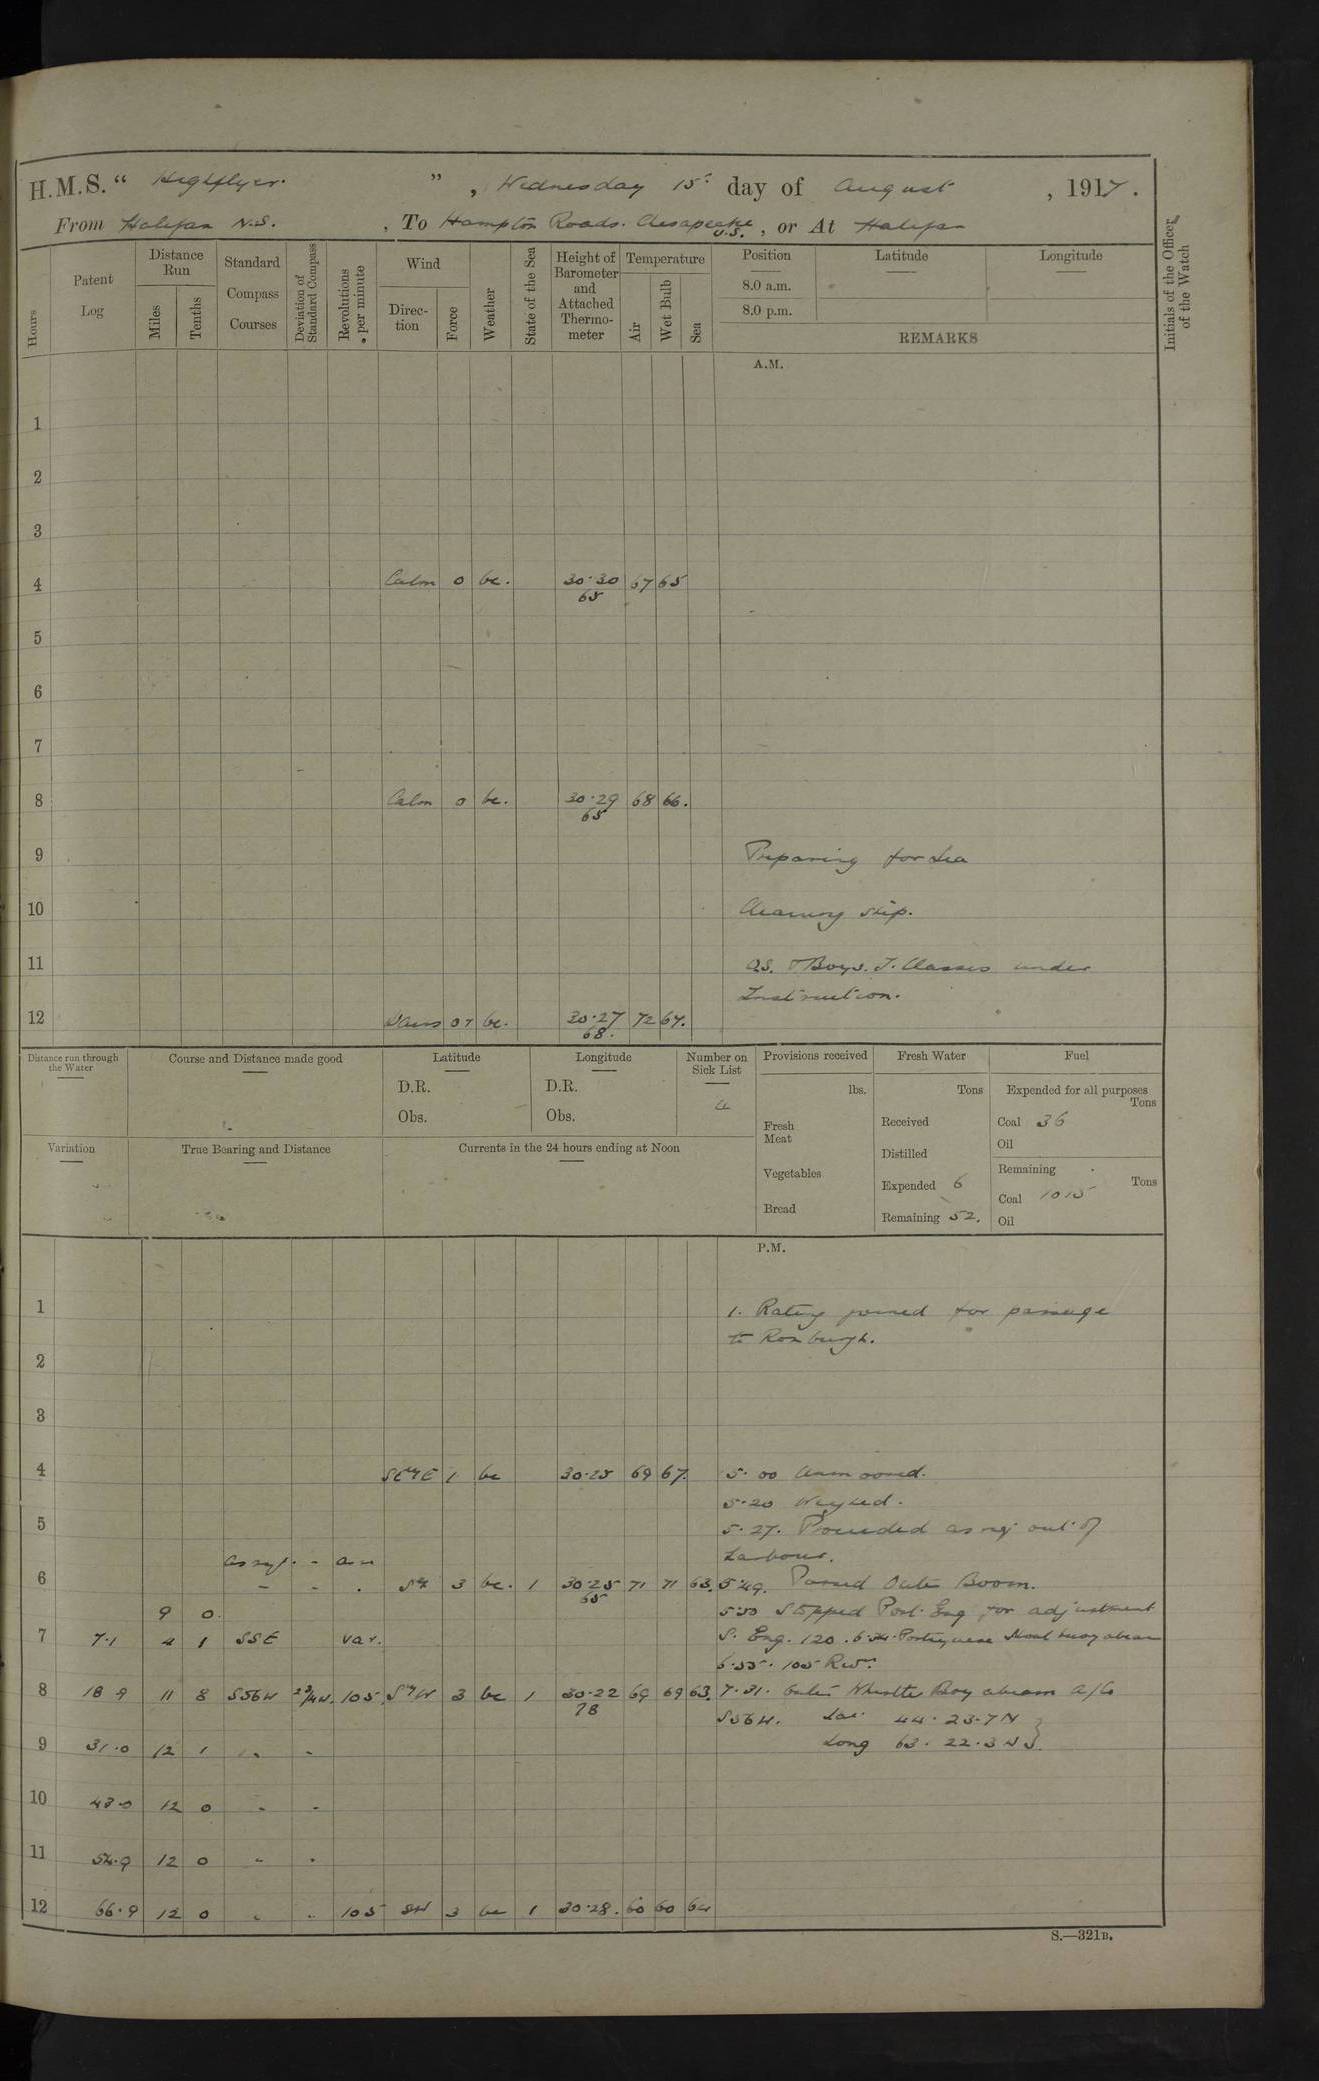 H.M.S. “ Highflyer. ” , Wednesday 15th day of August , 1917.
From Halifax N.S. , To Hampton Roads. Chesapeake U.S. , or At Halifax
Hours
Patent Log
Distance Run
Miles
Tenths
Standard Compass Courses
Deviation of Standard Compass
Revolutions per minute
Wind
Direction
Force
Weather
State of the Sea
Height of Barometer and Attached Thermometer
Temperature
Air
Wet Bulb
Sea
Position
Latitude
Longitude
8.0 a.m.
8.0 p.m.
REMARKS
Initials of the Officer of the Watch
A.M.
1
2
3
4 Calm 0 bc. 30·30 67 65
65
5
6
7
8 Calm 0 bc. 30·29 68 66.
65
9 Preparing for Sea
10 Cleaning ship.
11 & Boys. T. Classes under
Instruction.
12 bc. 30·27 72 67.
68.
Distance run through the Water
Course and Distance made good
Latitude
D.R.
Obs.
Longitude
D.R.
Obs.
Number on Sick List
Provisions received
lbs.
Fresh Meat
Vegetables
Bread
Fresh Water
Tons
Received
Distilled
Expended 6
Remaining 52.
Fuel
Expended for all purposes
Tons
Coal 36
Oil
Remaining
Tons
Coal 1015
Oil
Variation
True Bearing and Distance
Currents in the 24 hours ending at Noon
P.M.
1 1. Rating joined for passage
to Roxburgh.
2
3
4 SE'ly E 1 bc 30·25 69 67. 5·00 Unmoored.
5·20 Weighed.
5 5·27. Proceeded as req out of
as req. - as harbour.
6 - - . 3 bc. 1 30·25 71 71 63. 5·49. Passed Outer Boom.
65
9 0 5·50 Stopped Port. Eng for adjustment
7 7·1 4 1 SSE var. S. Eng. 120. 6·34. Portuguese Shoal buoy abeam
6·55. 105 Revs.
8 18 9 11 8 S56W 2¾W. 105 3 bc 1 30·22 69 69 63. 7·31. Outer Whistle Buoy abeam A/Co
78
S56W. Lat 44·23·7N
9 31·0 12 1 " - Long 63·22·3W
10 43·0 12 0 - -
11 54·9 12 0 - .
12 66·9 12 0 . . 105 SW 3 bc 1 30·28. 60 60 64
S.—321B.